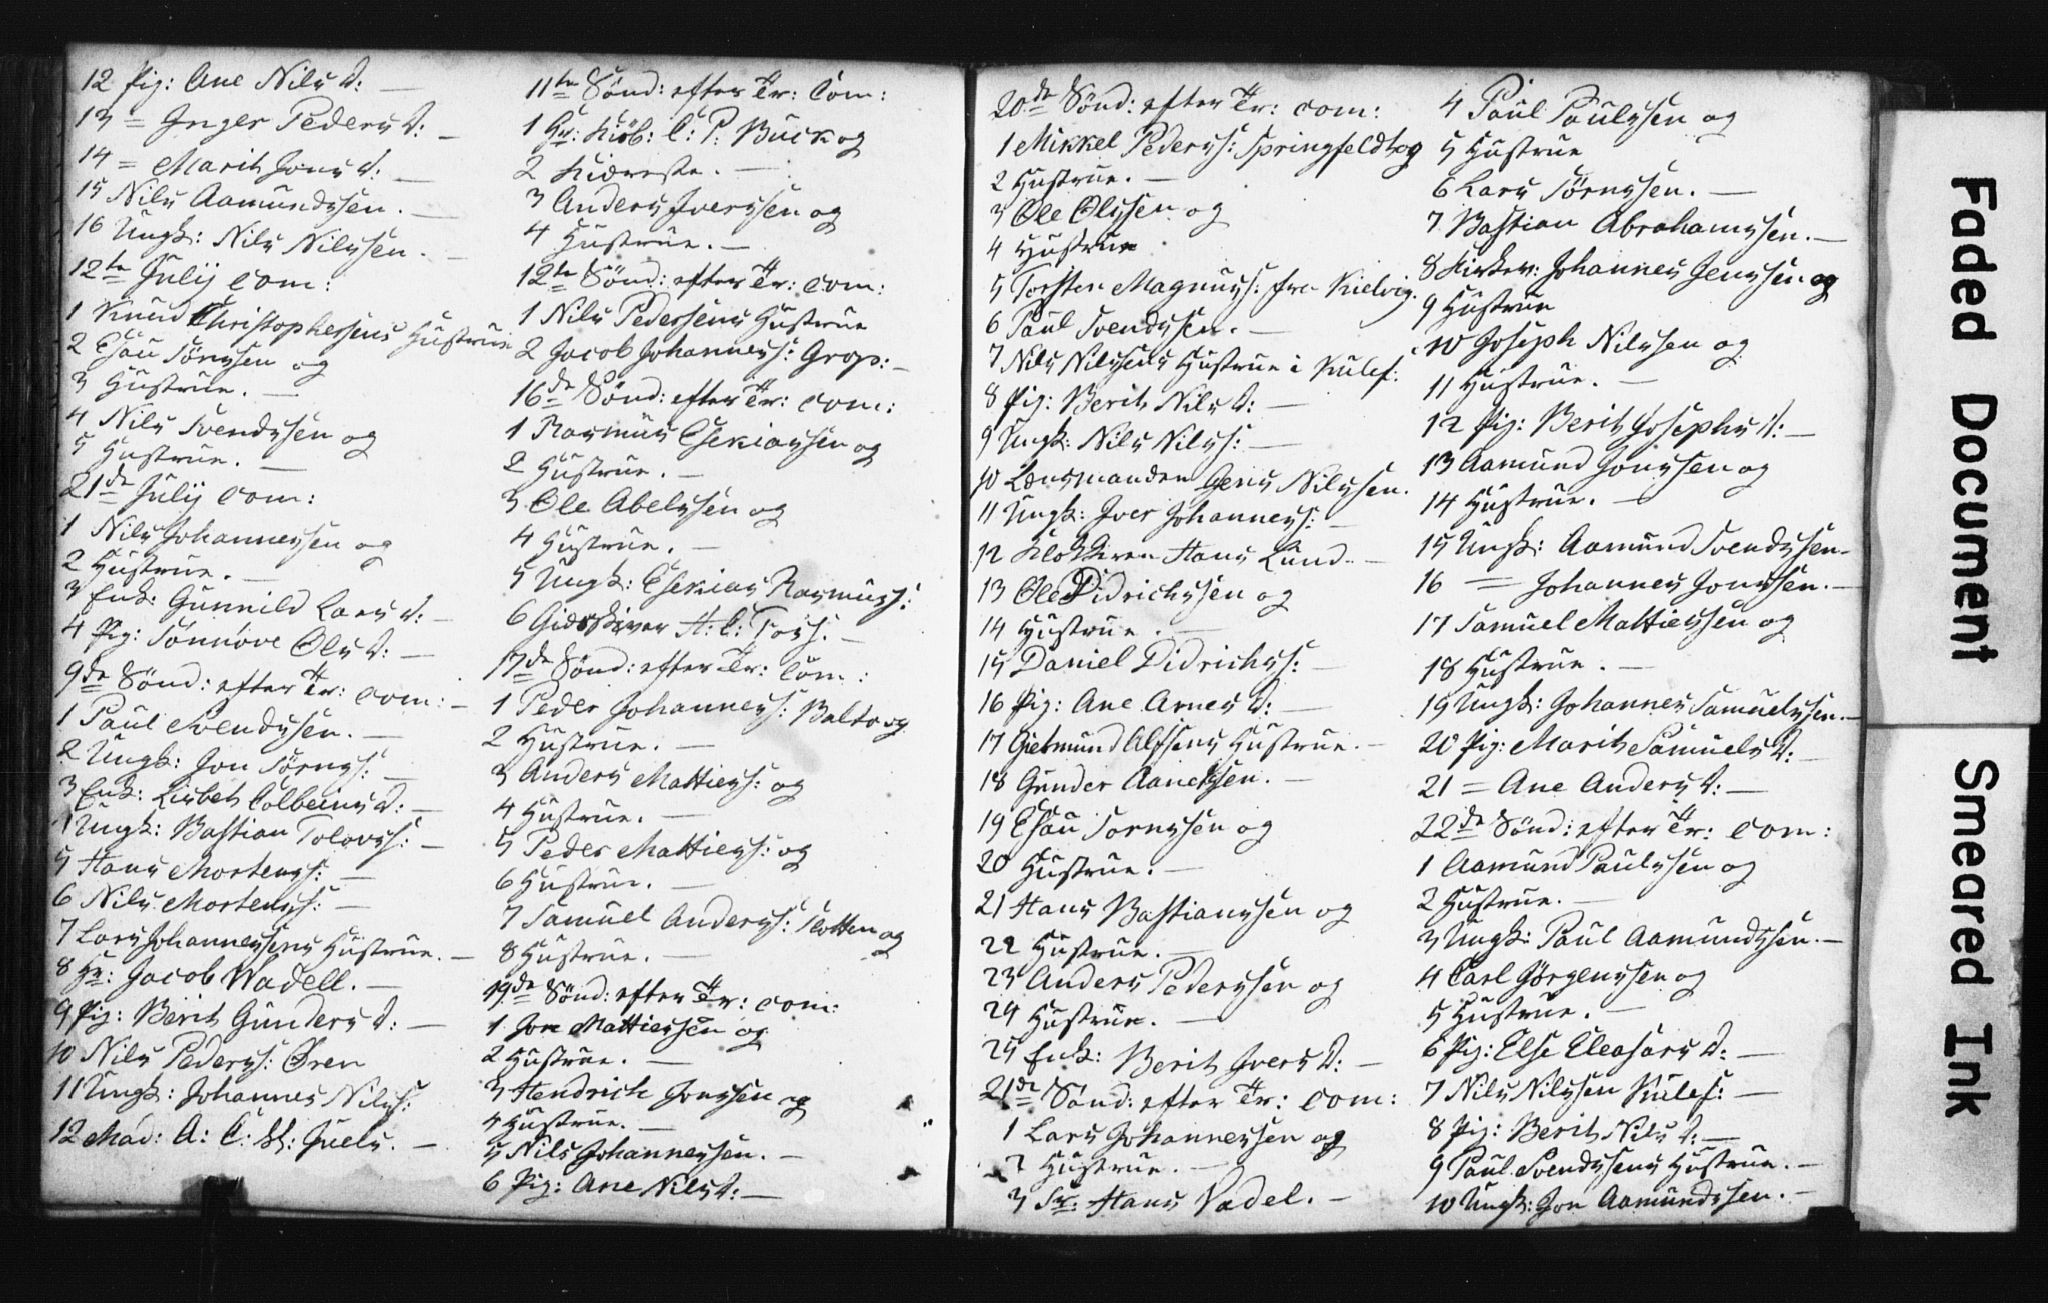 12 Pig: Ane Nils D: —
13 = Inger Peders D: —
14 = Marith Jons D: —
15 Nils Aamundssen. —
16 Ungk: Nils Nilssen. —
12te Julij Com:
1 Knud Christophersens Hustrue
2 Esau Tørrissen og
3 Hustrue. —
4 Nils Svendssen og
5 Hustrue. —
21de Julij Com:
1 Nils Johannessen og
2 Hustrue. —
3 Enk: Gunnild Lars D: —
4 Pig: Sønnøve Ols D: —
9de Sønd: efter Tr: Com: —
1 Paul Svendssen. —
2 Ungk: Jon —
3 Enk: Lisbeth Colbeins D: —
4 Ungk: Bastian —
5 Hans Mortens: —
6 Nils Mortens: —
7 Lars Johannessens Hustrue. —
8 Hr: Jacob Wadell. —
9 Pig: Berith Gunders D: —
10 Nils Peders: Øren
11 Ungk: Johannes Nils:
12 Mad: A: C: Juels. —
11te Sønd: efter Tr: Com:
1 Hr: Kiøb: C: P: Buck og
2 Kiæreste. —
3 Anders Iverssen og
4 Hustrue. —
12te Sønd: efter Tr: Com:
1 Nils Pedersens Hustrue
2 Jacob Johannes: Grop: —
16de Sønd: efter Tr: Com:
1 Rasmus Esekiassen og
2 Hustrue. —
3 Ole Abelssen og
4 Hustrue. —
5 Ungk: Esekias Rasmuss:
6 Giæstgiver H: C:
17de Sønd: efter Tr: Com:
1 Peder Johannes: Balto og
2 Hustrue. —
3 Anders Matties: og
4 Hustrue. —
5 Peder Matties: og
6 Hustrue. —
7 Samuel Anders: Slotten og
8 Hustrue. —
19de Sønd: efter Tr: Com:
1 Jon Mattiessen og
2 Hustrue. —
3 Hendrich Jonssen og
4 Hustrue. —
5 Nils Johannessen. —
6 Pig: Ane Nils D: —
20de Sønd: efter Tr: Com:
1 Mikkel Peders: Springfeldt og
2 Hustrue. —
3 Ole Olssen og
4 Hustrue
5 Torsten Magnus: fra Kielvig.
6 Paul Svendssen. —
7 Nils Nilssens Hustrue i Kulef:
8 Pig: Berith Nils D: —
9 Ungk: Nils Nils: —
10 Lænsmanden Jens Nilssen.
11 Ungk: Iver Johannes: —
12 Klokkeren Hans Lund. —
13 Ole Didrichssen og
14 Hustrue. —
15 Daniel Didrichs: —
16 Pig: Ane Arnes D: —
17 Gietmund Alfsens Hustrue. —
18 Gunder Aanetsen. —
19 Esau Tornssen og
20 Hustrue. —
21 Hans Bastianssen og
22 Hustrue. —
23 Anders Pederssen og
24 Hustrue. —
25 Enk: Berith Ivers D: —
21de Sønd: efter Tr: Com:
1 Lars Johannessen og
2 Hustrue. —
3 Sr: Hans Vadel. —
4 Paul Paulssen og
5 Hustrue
6 Lars Tørrissen. —
7 Bastian Abrahamssen. —
8 Kirkev: Johannes Jenssen og
9 Hustrue
10 Joseph Nilssen og
11 Hustrue. —
12 Pig: Berith Josephs D: —
13 Aamund Jonssen og
14 Hustrue. —
15 Ungk: Aamund Svendssen —
16 = Johannes Jonssen. —
17 Samuel Mattiessen og
18 Hustrue. —
19 Ungk: Johannes Samuelssen. —
20 Pig: Marith Samuels D: —
21 = Ane Anders D: —
22de Sønd: efter Tr: Com:
1 Aamund Paulssen og
2 Hustrue. —
3 Ungk: Paul Aamundssen. —
4 Carl Gørgenssen og
5 Hustrue. —
6 Pig: Else Eleasars D: —
7 Nils Nilssen Kulef: —
8 Pig: Berith Nils D: —
9 Paul Svendssens Hustrue. —
10 Ungk: Jon Aamundssen. —
Faded Document
Smeared Ink